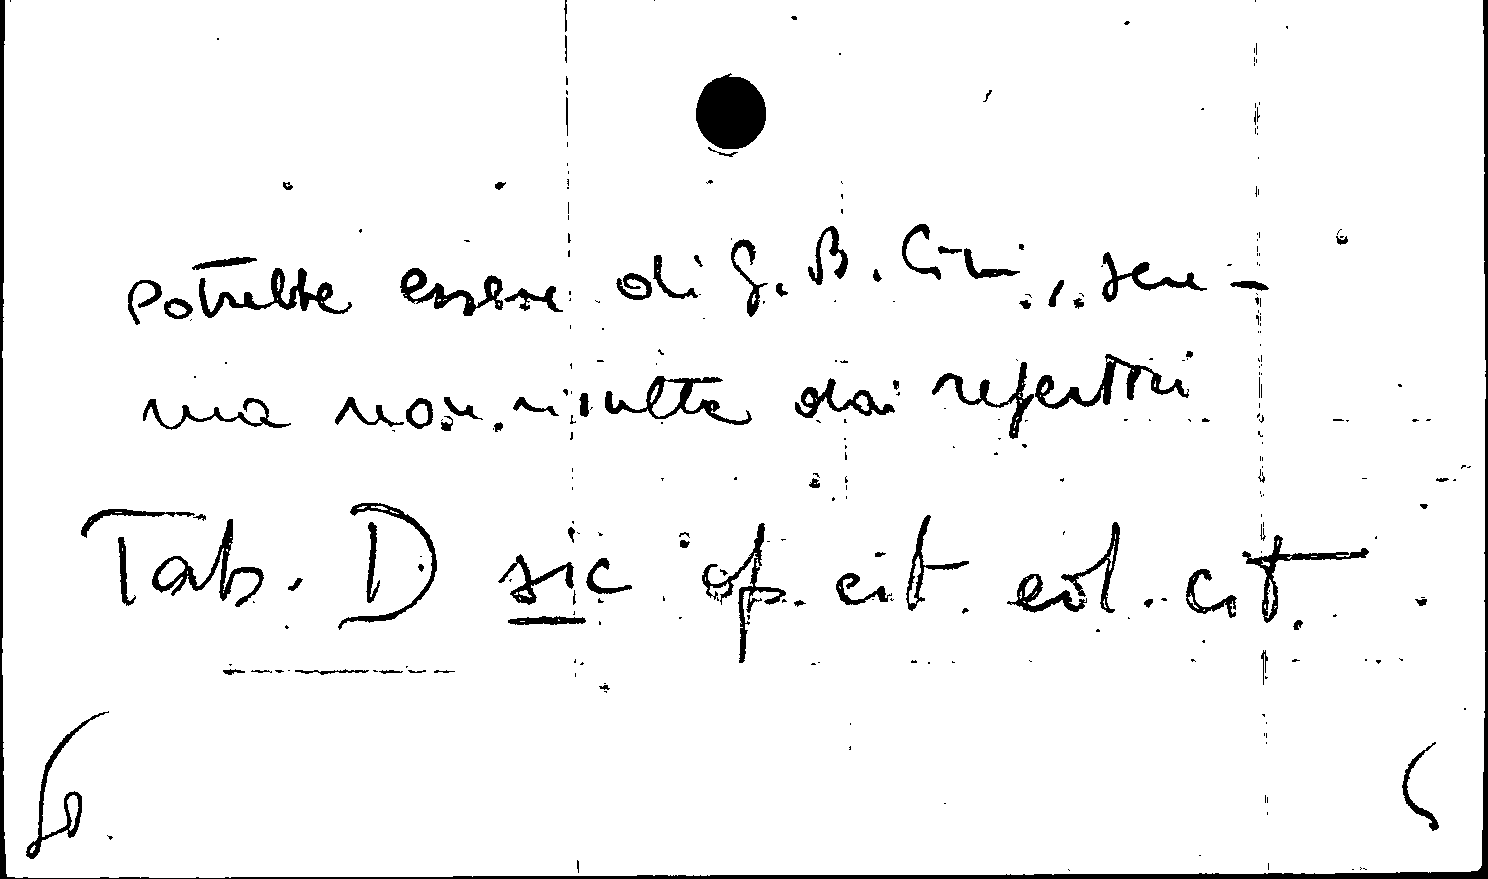 potrebbe essere di G. B. Cini,
ma non risulta dai repertori
Tab. D sic op. cit. ed. cit.